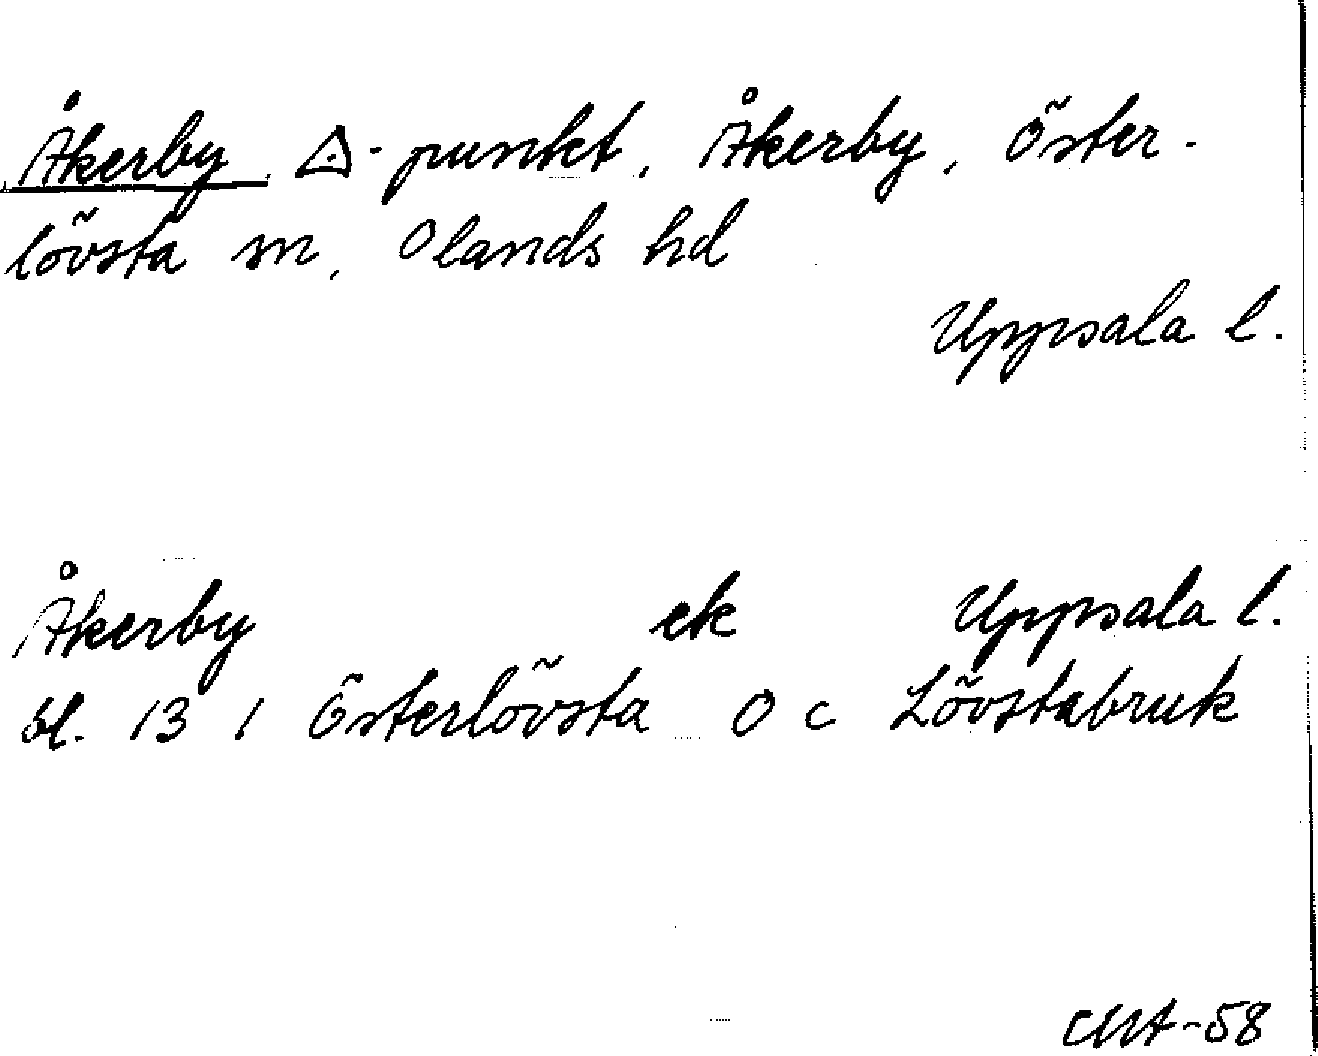 Åkerby △-punkt, Åkerby, Öster-
lövsta sn, Olands hd
Uppsala l.
Åkerby ek Uppsala l.
bl. 13 I Österlövsta O c Lövstabruk
-58